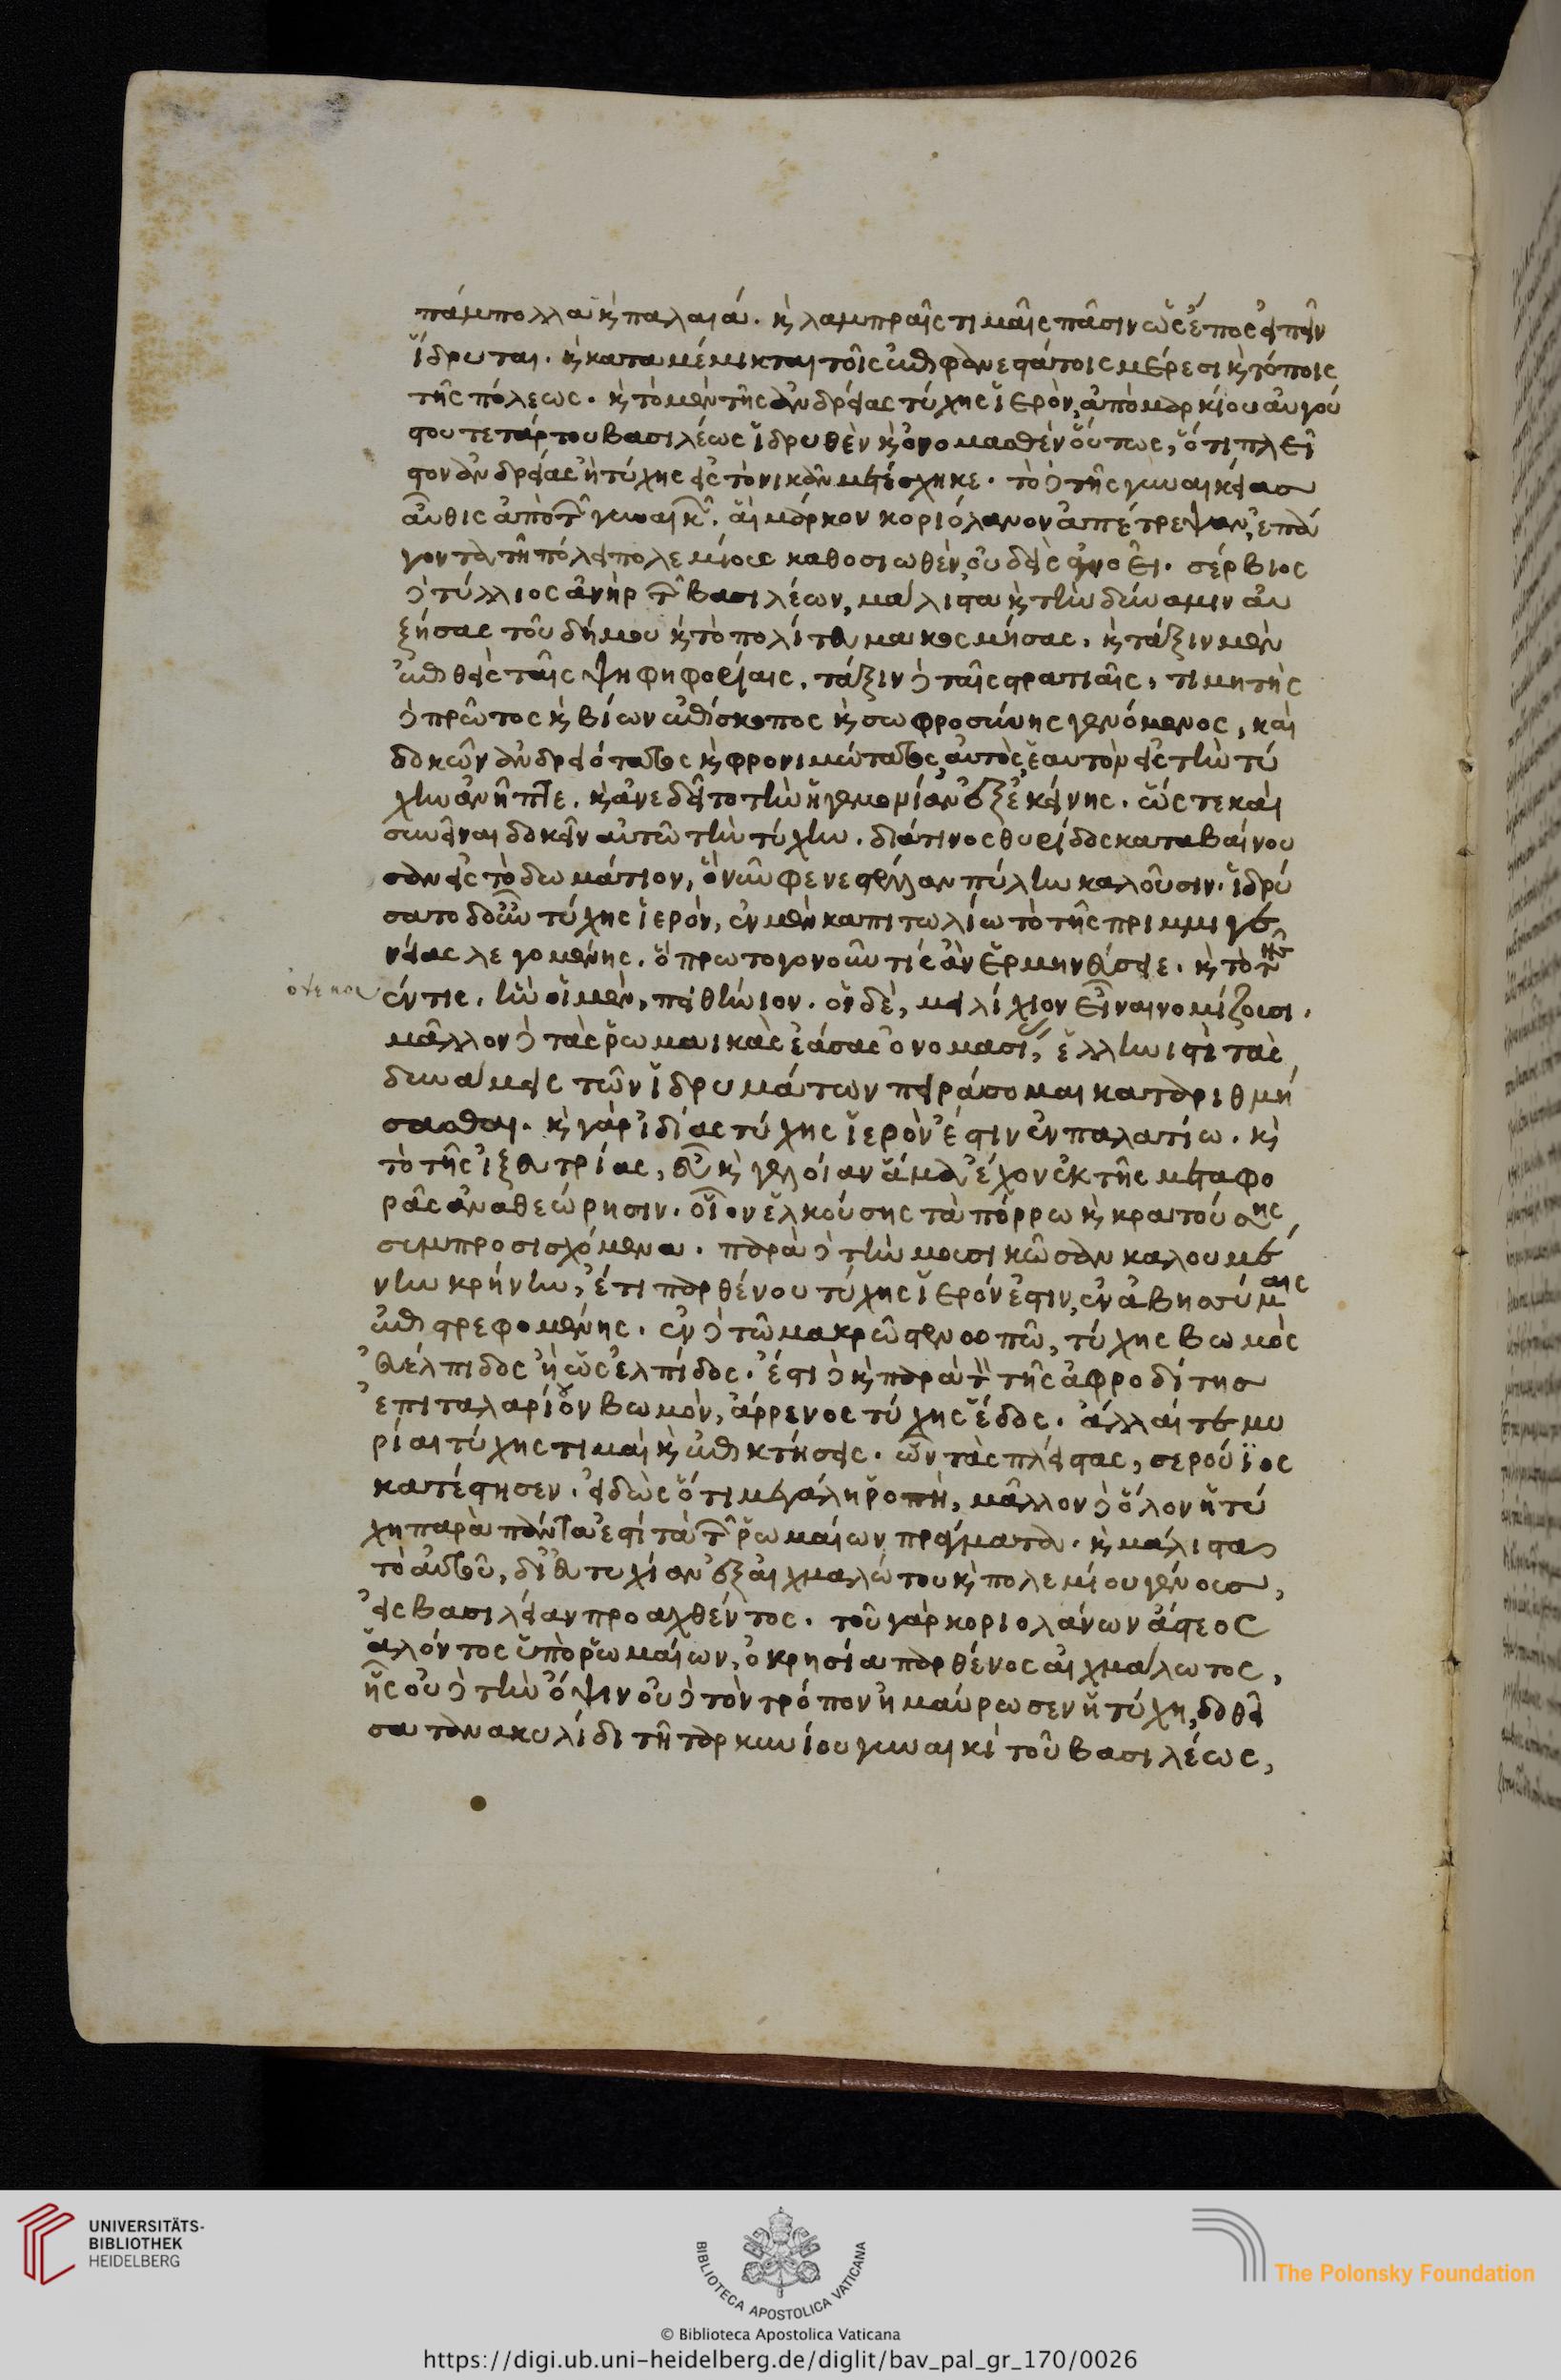 πάμπολλα ϗ παλαιά. ϗ λαμπραῖς τιμαῖς πᾶσιν ὡς ἔπος εἰπεῖν
ἵδρυται. ϗ καταμέμικται τοῖς ἐπιφανεστάτοις μέρεσι ϗ τόποις
τῆς πόλεως. ϗ τὸ μὲν τῆς ἀνδρείας τύχης ἱερὸν, ἀπὸ μαρκίου αὐγού
στου τετάρτου βασιλέως ἱδρυθὲν ϗ ὀνομασθὲν οὕτως, ὅτι πλεῖ
στον ἀνδρείας ἡ τύχης εἰς τὸ νικᾶν μετέσχηκε. τὸ δὲ τῆς γυναικείας
αὖθις ἀπὸ τῶν γυναικῶν. αἳ μάρκον κοριόλανον ἀπέτρεψαν, ἐπά
γοντα τῇ πόλει πολεμίους καθοσιωθὲν, οὐδεὶς ἀγνοεῖ. σέρβιος
δὲ τύλλιος ἀνὴρ τῶν βασιλέων, μάλιστα ϗ τὴν δύναμιν αὐ
ξήσας τοῦ δήμου ϗ τὸ πολίτευμα κοσμήσας. ϗ τάξιν μὲν
ἐπιθεὶς ταῖς ψηφηφορίαις. τάξιν δὲ ταῖς στρατιαῖς, τιμητὴς
δὲ πρῶτος ϗ βίων ἐπίσκοπος ϗ σωφροσύνης γενόμενος, καὶ
δοκῶν ἀνδρειότατος ϗ φρονιμώτατος, αὐτὸς ἑαυτὸν εἰς τὴν τύ
χην ἀνῆπτε. ϗ ἀνεδεῖτο τὴν ἡγεμονίαν ἐξ ἐκείνης. ὥς τε καὶ
συνεῖναι δοκεῖν αὐτῶ τὴν τύχην. διά τινος θυρίδος καταβαίνου
σαν εἰς τὸ δωμάτιον, ὃ νῦν φενεστέλλαν πύλην καλοῦσιν. ἱδρύ
σατο δοὖν τύχης ἱερὸν, ἐν μὲν καπιτωλίω τὸ τῆς πριμμιγε
νείας λεγομένης. ὃ πρωτογόνου τὶς ἂν ἑρμηνεύσειε. ϗ τὸ τῆς
έντις. ἣν οἱ μὲν, πειθήνιον. οἳ δὲ, μειλίχιον εἶναι νομίζουσι.
μᾶλλον δὲ τὰς ῥωμαικὰς ἐάσας ὀνομασίας, ἑλληνιστὶ τὰς
δυνάμεις τῶν ἱδρυμάτων πειράσομαι καταριθμή
σασθαι. ϗ γὰρ ἰδίας τύχης ἱερὸν ἔστιν ἐν παλατίω. ϗ
τὸ τῆς ἰξευτρίας, εὖ ϗ γελοίαν ἅμα ἔχον ἐκ τῆς μεταφο
ρᾶς ἀναθεώρησιν. οἷον ἑλκούσης τὰ πόρρω ϗ κρατούσης
συμπροσισχόμενα. παρὰ δὲ τὴν μουσικῶσαν καλουμέ
νην κρήνην, ἔτι παρθένου τύχης ἱερόν ἐστιν, ἐν ἀβησκύμαις
ἐπιστρεφομένης. ἐν δὲ τῶ μακρῶ στενοοπῶ, τύχης βωμὸς
εὐέλπιδος ἢ ὡς ἐλπίδος. ἔστι δὲ ϗ παρὰ τὸν τῆς ἀφροδίτης
ἐπιταλαρίου βωμὸν, ἄρρενος τύχης ἕδος. ἄλλαί τε μυ
ρίαι τύχης τιμαὶ ϗ ἐπικτήσεις. ὧν τὰς πλείστας, σερούϊος
κατέστησεν. εἰδὼς ὅτι μεγάλη ῥοπὴ, μᾶλλον δὲ ὅλον ἡ τύ
χη παρὰ πάντα ἐστὶ τὰ τῶν ῥωμαίων πράγματα. ϗ μάλιστα
τὸ αὐτοῦ, δι' εὐτυχίαν ἐξ αἰχμαλώτου ϗ πολεμίου γένους,
εἰς βασιλείαν προαχθέντος. τοῦ γὰρ κοριολάνων ἄστεος
ἁλόντος ὑπὸ ῥωμαίων, ὀκρησία παρθένος αἰχμάλωτος,
ἧς οὐδὲ τὴν ὄψιν οὐδὲ τὸν τρόπον ἠμαύρωσεν ἡ τύχη, δοθεῖ
σα τανακυλίδι τῇ ταρκυνίου γυναικὶ τοῦ βασιλέως,
UNIVERSITÄTS-
BIBLIOTHEK
HEIDELBERG
BIBLIOTECA APOSTOLICA VATICANA
The Polonsky Foundation
© Biblioteca Apostolica Vaticana
https://digi.ub.uni-heidelberg.de/diglit/bav_pal_gr_170/0026